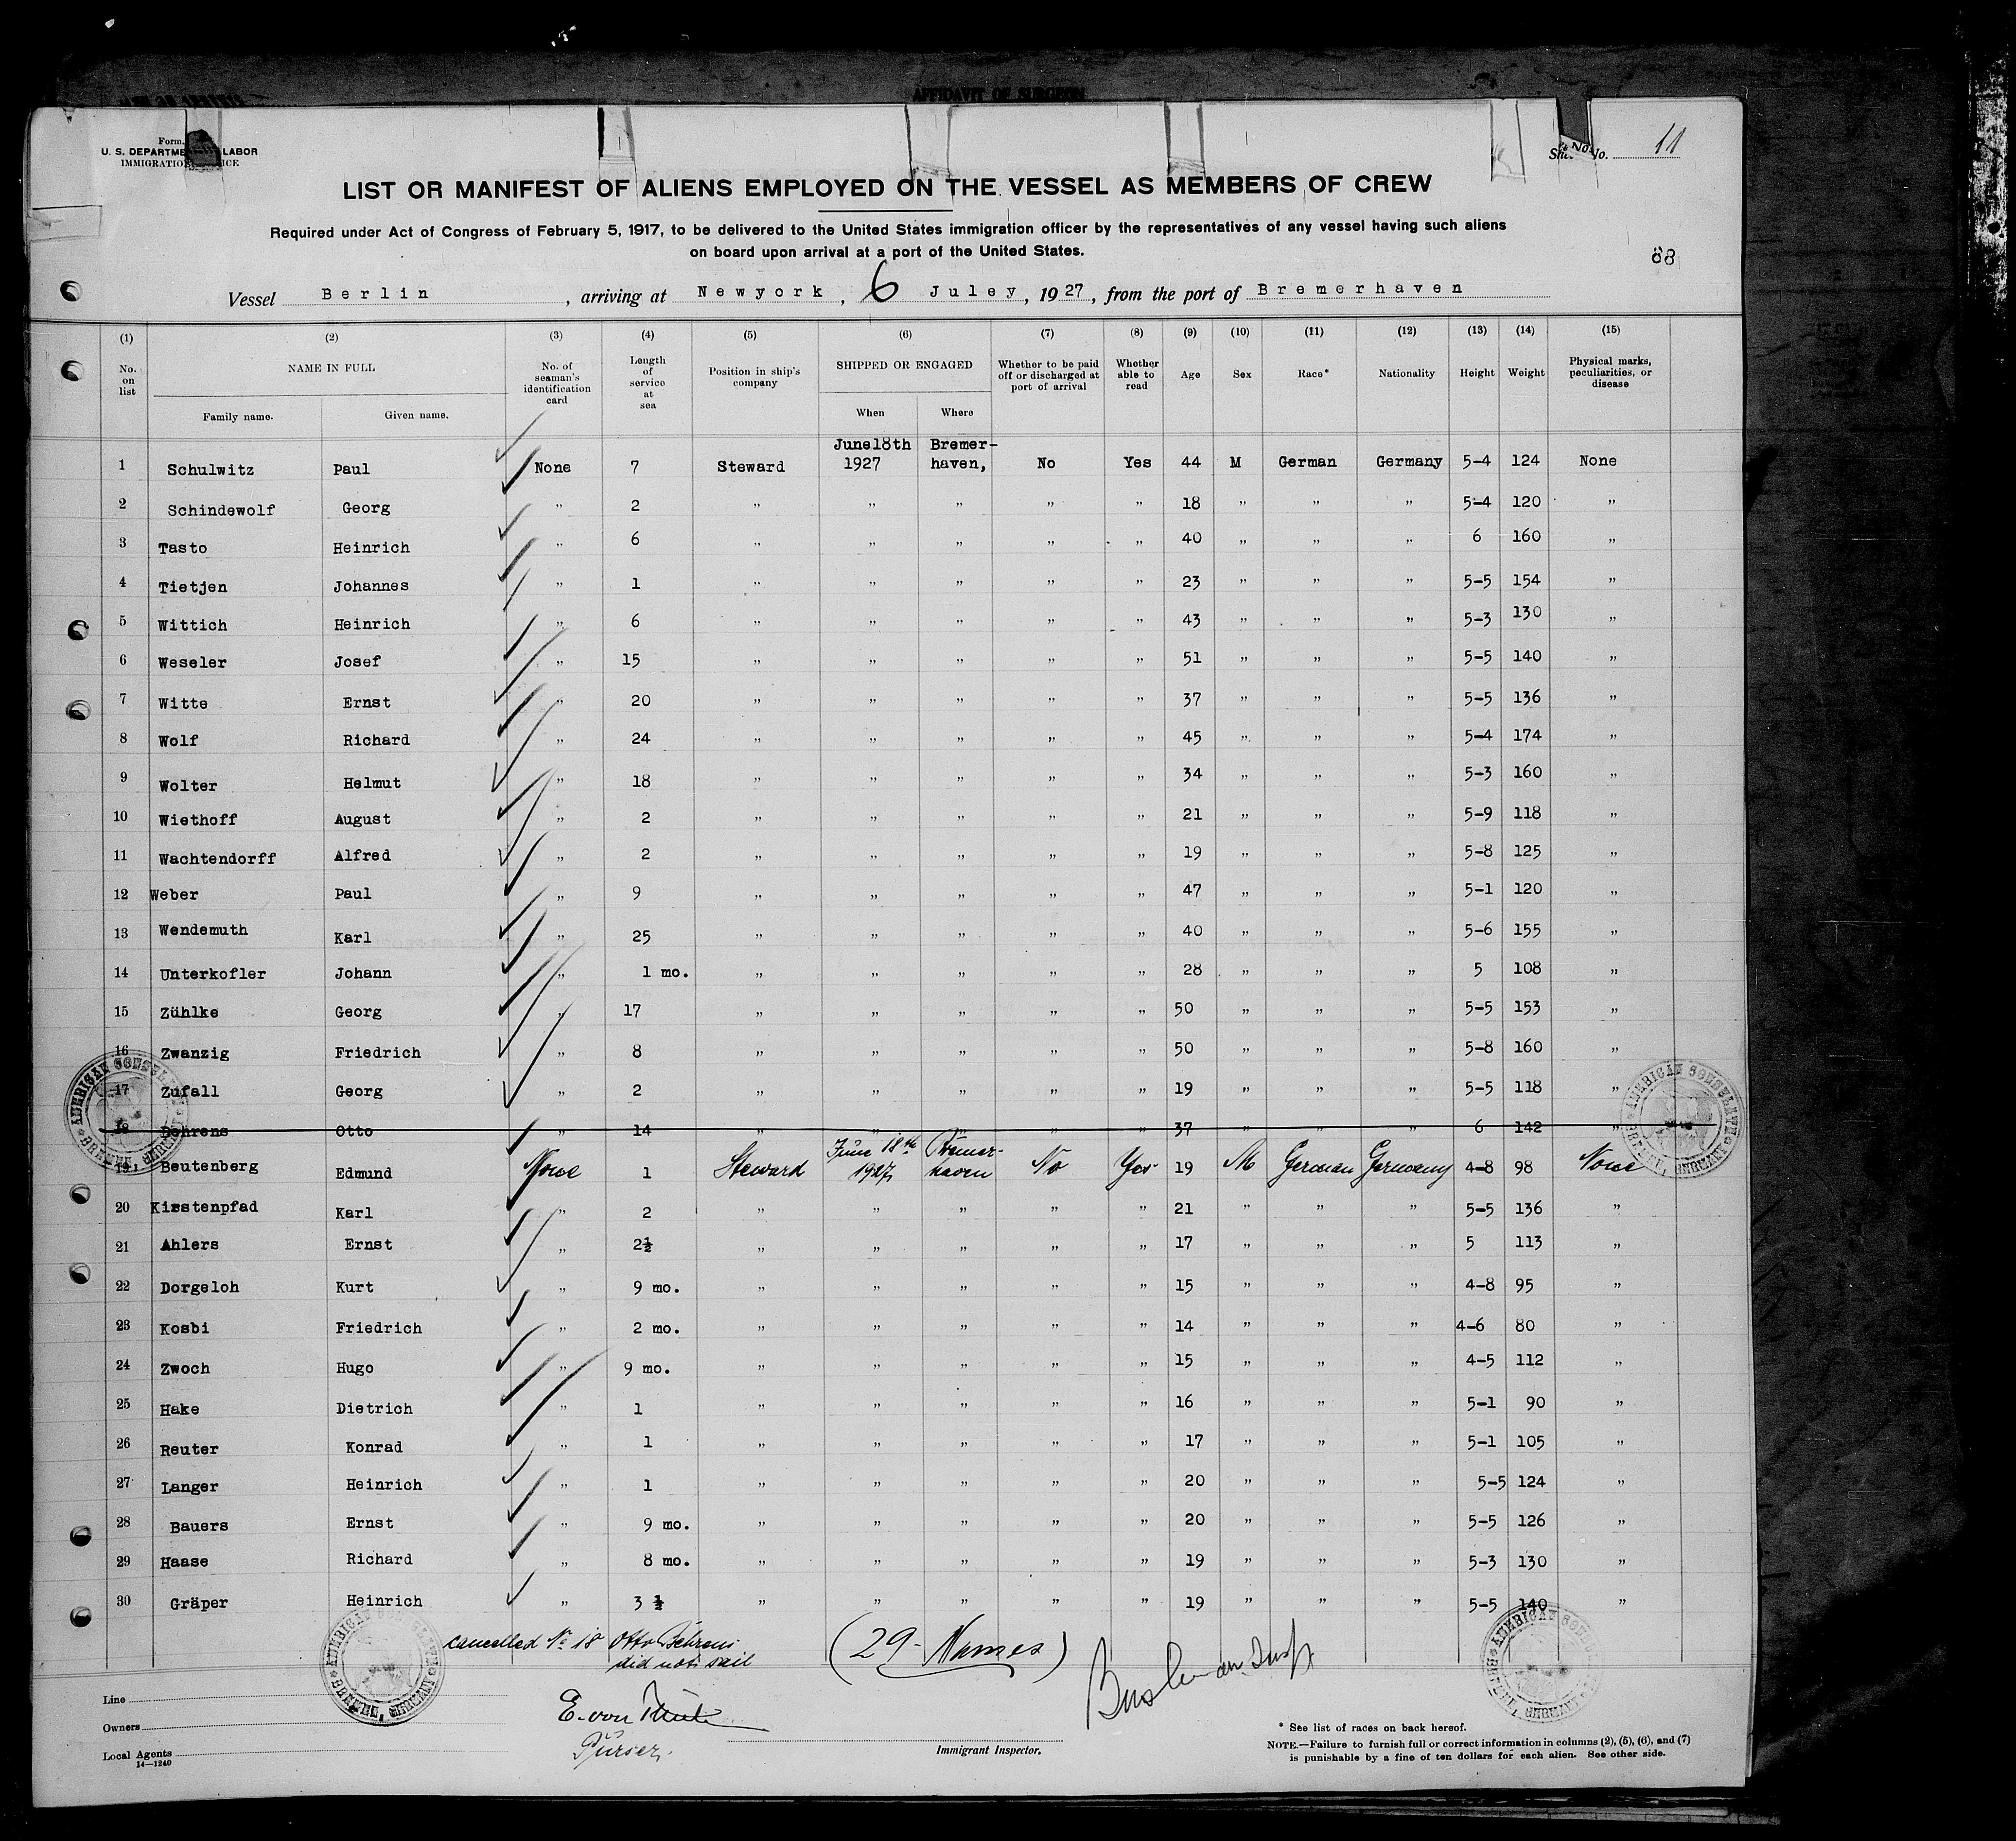 AFFIDAVIT OF SURGEON
Form
U. S. DEPARTME LABOR
IMMIGRATIO ICE
No. 11
LIST OR MANIFEST OF ALIENS EMPLOYED ON THE VESSEL AS MEMBERS OF CREW
Required under Act of Congress of February 5, 1917, to be delivered to the United States immigration officer by the representatives of any vessel having such aliens
on board upon arrival at a port of the United States.
88
Vessel Berlin, arriving at Newyork, 6 Juley, 1927, from the port of Bremerhaven
(1) (2) (3) (4) (5) (6) (7) (8) (9) (10) (11) (12) (13) (14) (15)
No. on list NAME IN FULL Family name. Given name. No. of seaman's identification card Length of service at sea Position in ship's company SHIPPED OR ENGAGED When Where Whether to be paid off or discharged at port of arrival Whether able to read Age Sex Race* Nationality Height Weight Physical marks, peculiarities, or disease
1 Schulwitz Paul None 7 Steward June 18th 1927 Bremer-haven, No Yes 44 M German Germany 5-4 124 None
2 Schindewolf Georg " 2 " " " " " 18 " " " 5-4 120 "
3 Tasto Heinrich " 6 " " " " " 40 " " " 6 160 "
4 Tietjen Johannes " 1 " " " " " 23 " " " 5-5 154 "
5 Wittich Heinrich " 6 " " " " " 43 " " " 5-3 130 "
6 Weseler Josef " 15 " " " " " 51 " " " 5-5 140 "
7 Witte Ernst " 20 " " " " " 37 " " " 5-5 136 "
8 Wolf Richard " 24 " " " " " 45 " " " 5-4 174 "
9 Wolter Helmut " 18 " " " " " 34 " " " 5-3 160 "
10 Wiethoff August " 2 " " " " " 21 " " " 5-9 118 "
11 Wachtendorff Alfred " 2 " " " " " 19 " " " 5-8 125 "
12 Weber Paul " 9 " " " " " 47 " " " 5-1 120 "
13 Wendemuth Karl " 25 " " " " " 40 " " " 5-6 155 "
14 Unterkofler Johann " 1 mo. " " " " " 28 " " " 5 108 "
15 Zühlke Georg " 17 " " " " " 50 " " " 5-5 153 "
16 Zwanzig Friedrich " 8 " " " " " 50 " " " 5-8 160 "
17 Zufall Georg " 2 " " " " " 19 " " " 5-5 118 "
18 Behrens Otto " 14 " " " " " 37 " " " 6 142 "
19 Beutenberg Edmund None 1 Steward June 18th 1927 Bremer-haven No Yes 19 M German Germany 4-8 98 None
20 Kirstenpfad Karl " 2 " " " " " 21 " " " 5-5 136 "
21 Ahlers Ernst " 2½ " " " " " 17 " " " 5 113 "
22 Dorgeloh Kurt " 9 mo. " " " " " 15 " " " 4-8 95 "
23 Kosbi Friedrich " 2 mo. " " " " " 14 " " " 4-6 80 "
24 Zwoch Hugo " 9 mo. " " " " " 15 " " " 4-5 112 "
25 Hake Dietrich " 1 " " " " " 16 " " " 5-1 90 "
26 Reuter Konrad " 1 " " " " " 17 " " " 5-1 105 "
27 Langer Heinrich " 1 " " " " " 20 " " " 5-5 124 "
28 Bauers Ernst " 9 mo. " " " " " 20 " " " 5-5 126 "
29 Haase Richard " 8 mo. " " " " " 19 " " " 5-3 130 "
30 Gräper Heinrich " 3 ½ " " " " " 19 " " " 5-5 140 "
cancelled No 18 Otto Behrens
did not sail
(29 - Names)
AMERICAN CONSULATE BREMEN, GERMANY
Line
Owners
Local Agents
14—1240
E. von
Purser.
Immigrant Inspector.
* See list of races on back hereof.
NOTE.—Failure to furnish full or correct information in columns (2), (5), (6), and (7)
is punishable by a fine of ten dollars for each alien. See other side.